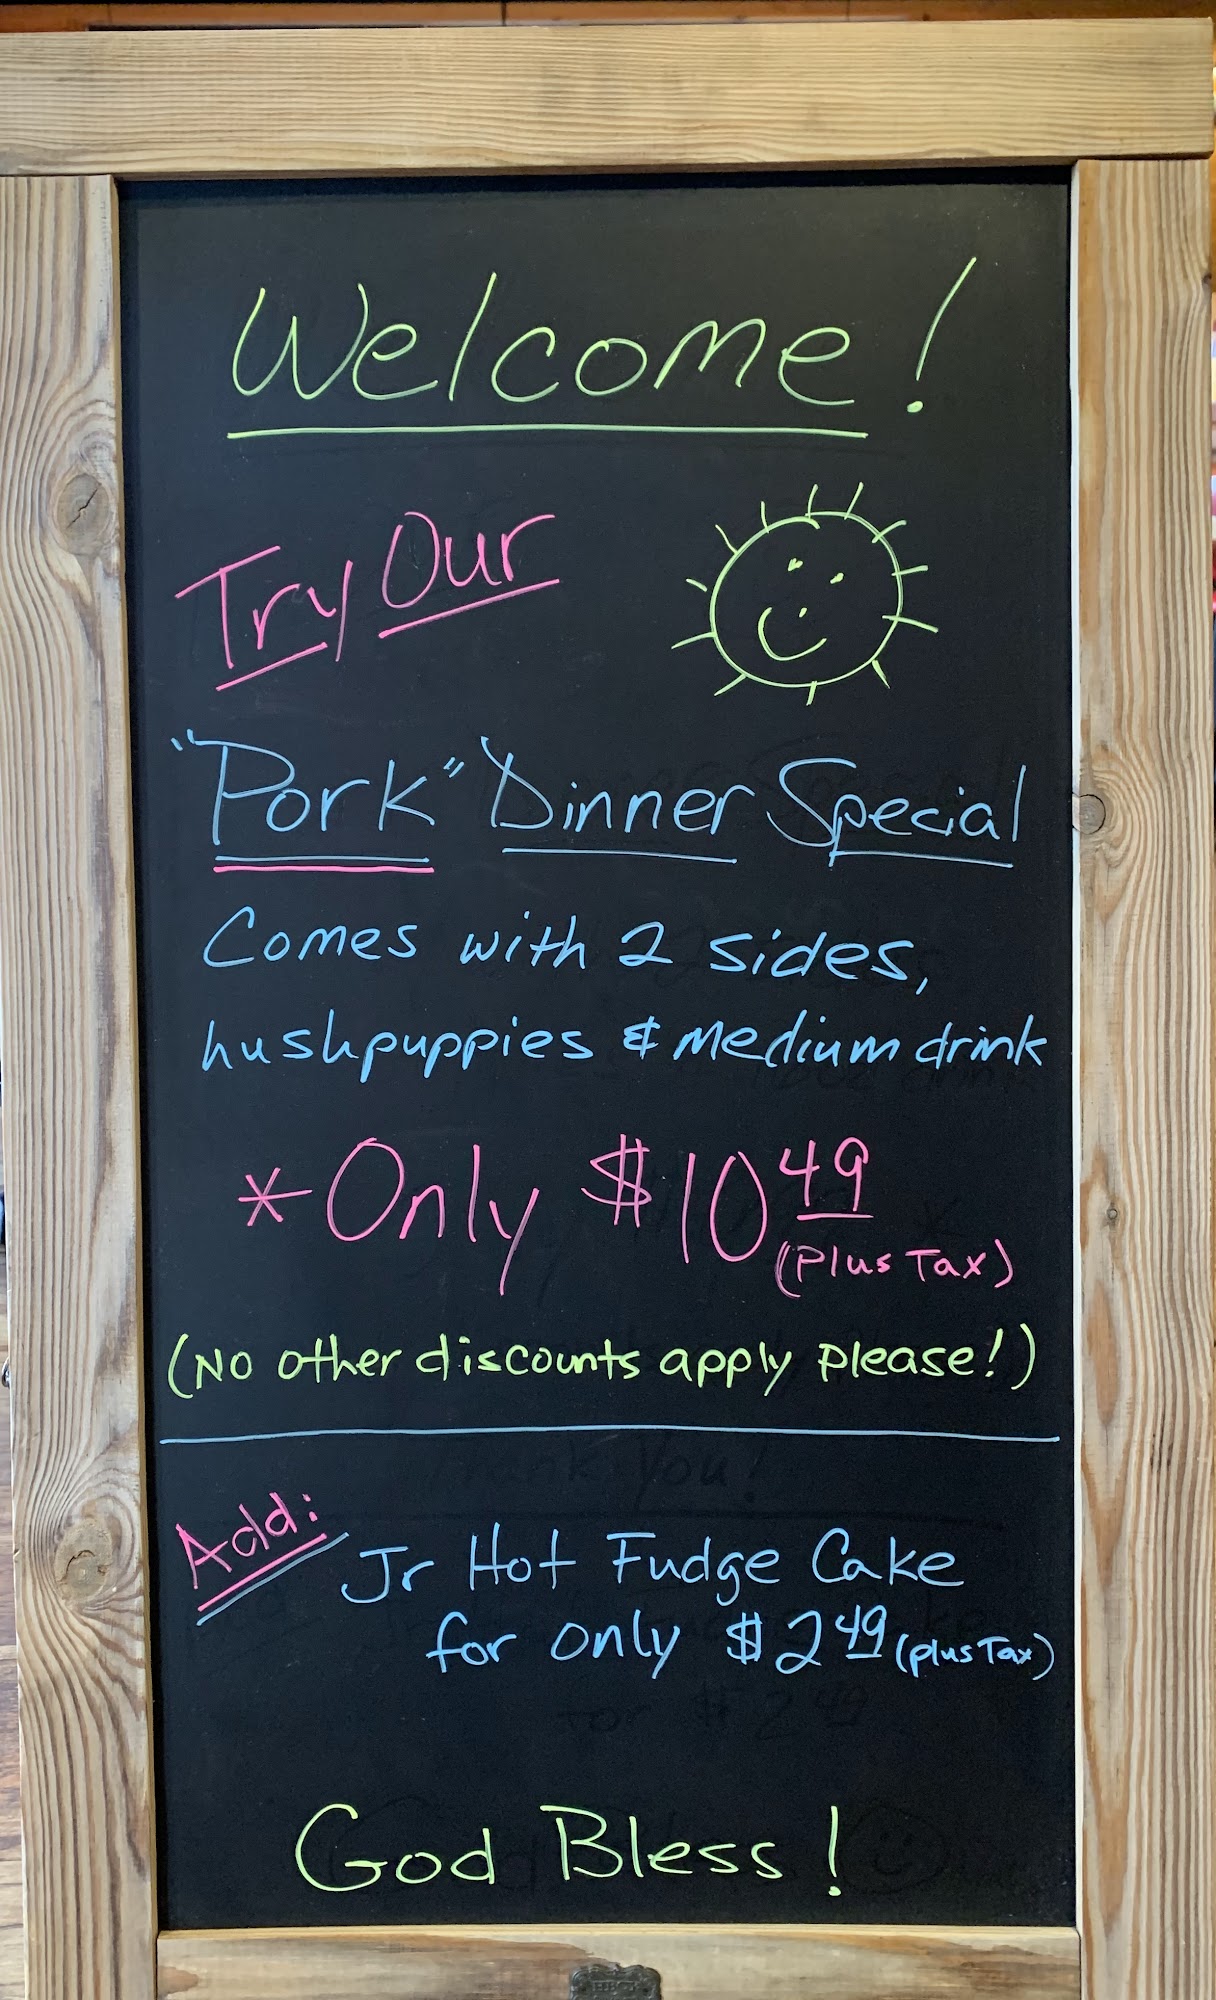 Welcome!
Try Our
"Pork" Dinner Special
Comes with 2 sides,
hushpuppies & Medium drink
* Only $10 49
(Plus Tax)
(No other discounts apply please!)
Thank You!
Add:
Jr Hot Fudge Cake
for only $2 49 (plus Tax)
for $2 49
God Bless!